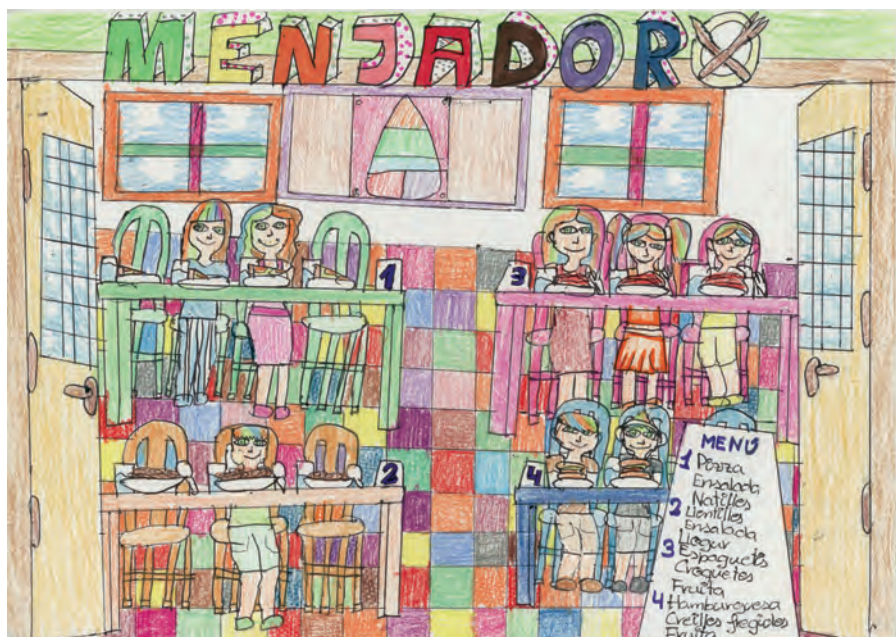 MENJADOR
1
3
2
4
MENÚ
1 Pizza
Ensalada
Natilles
2 Llentilles
Ensalada
Iogur
3 Espaguetis
Croquetes
Fruita
4 Hamburguesa
Creïlles fregides
Fruita